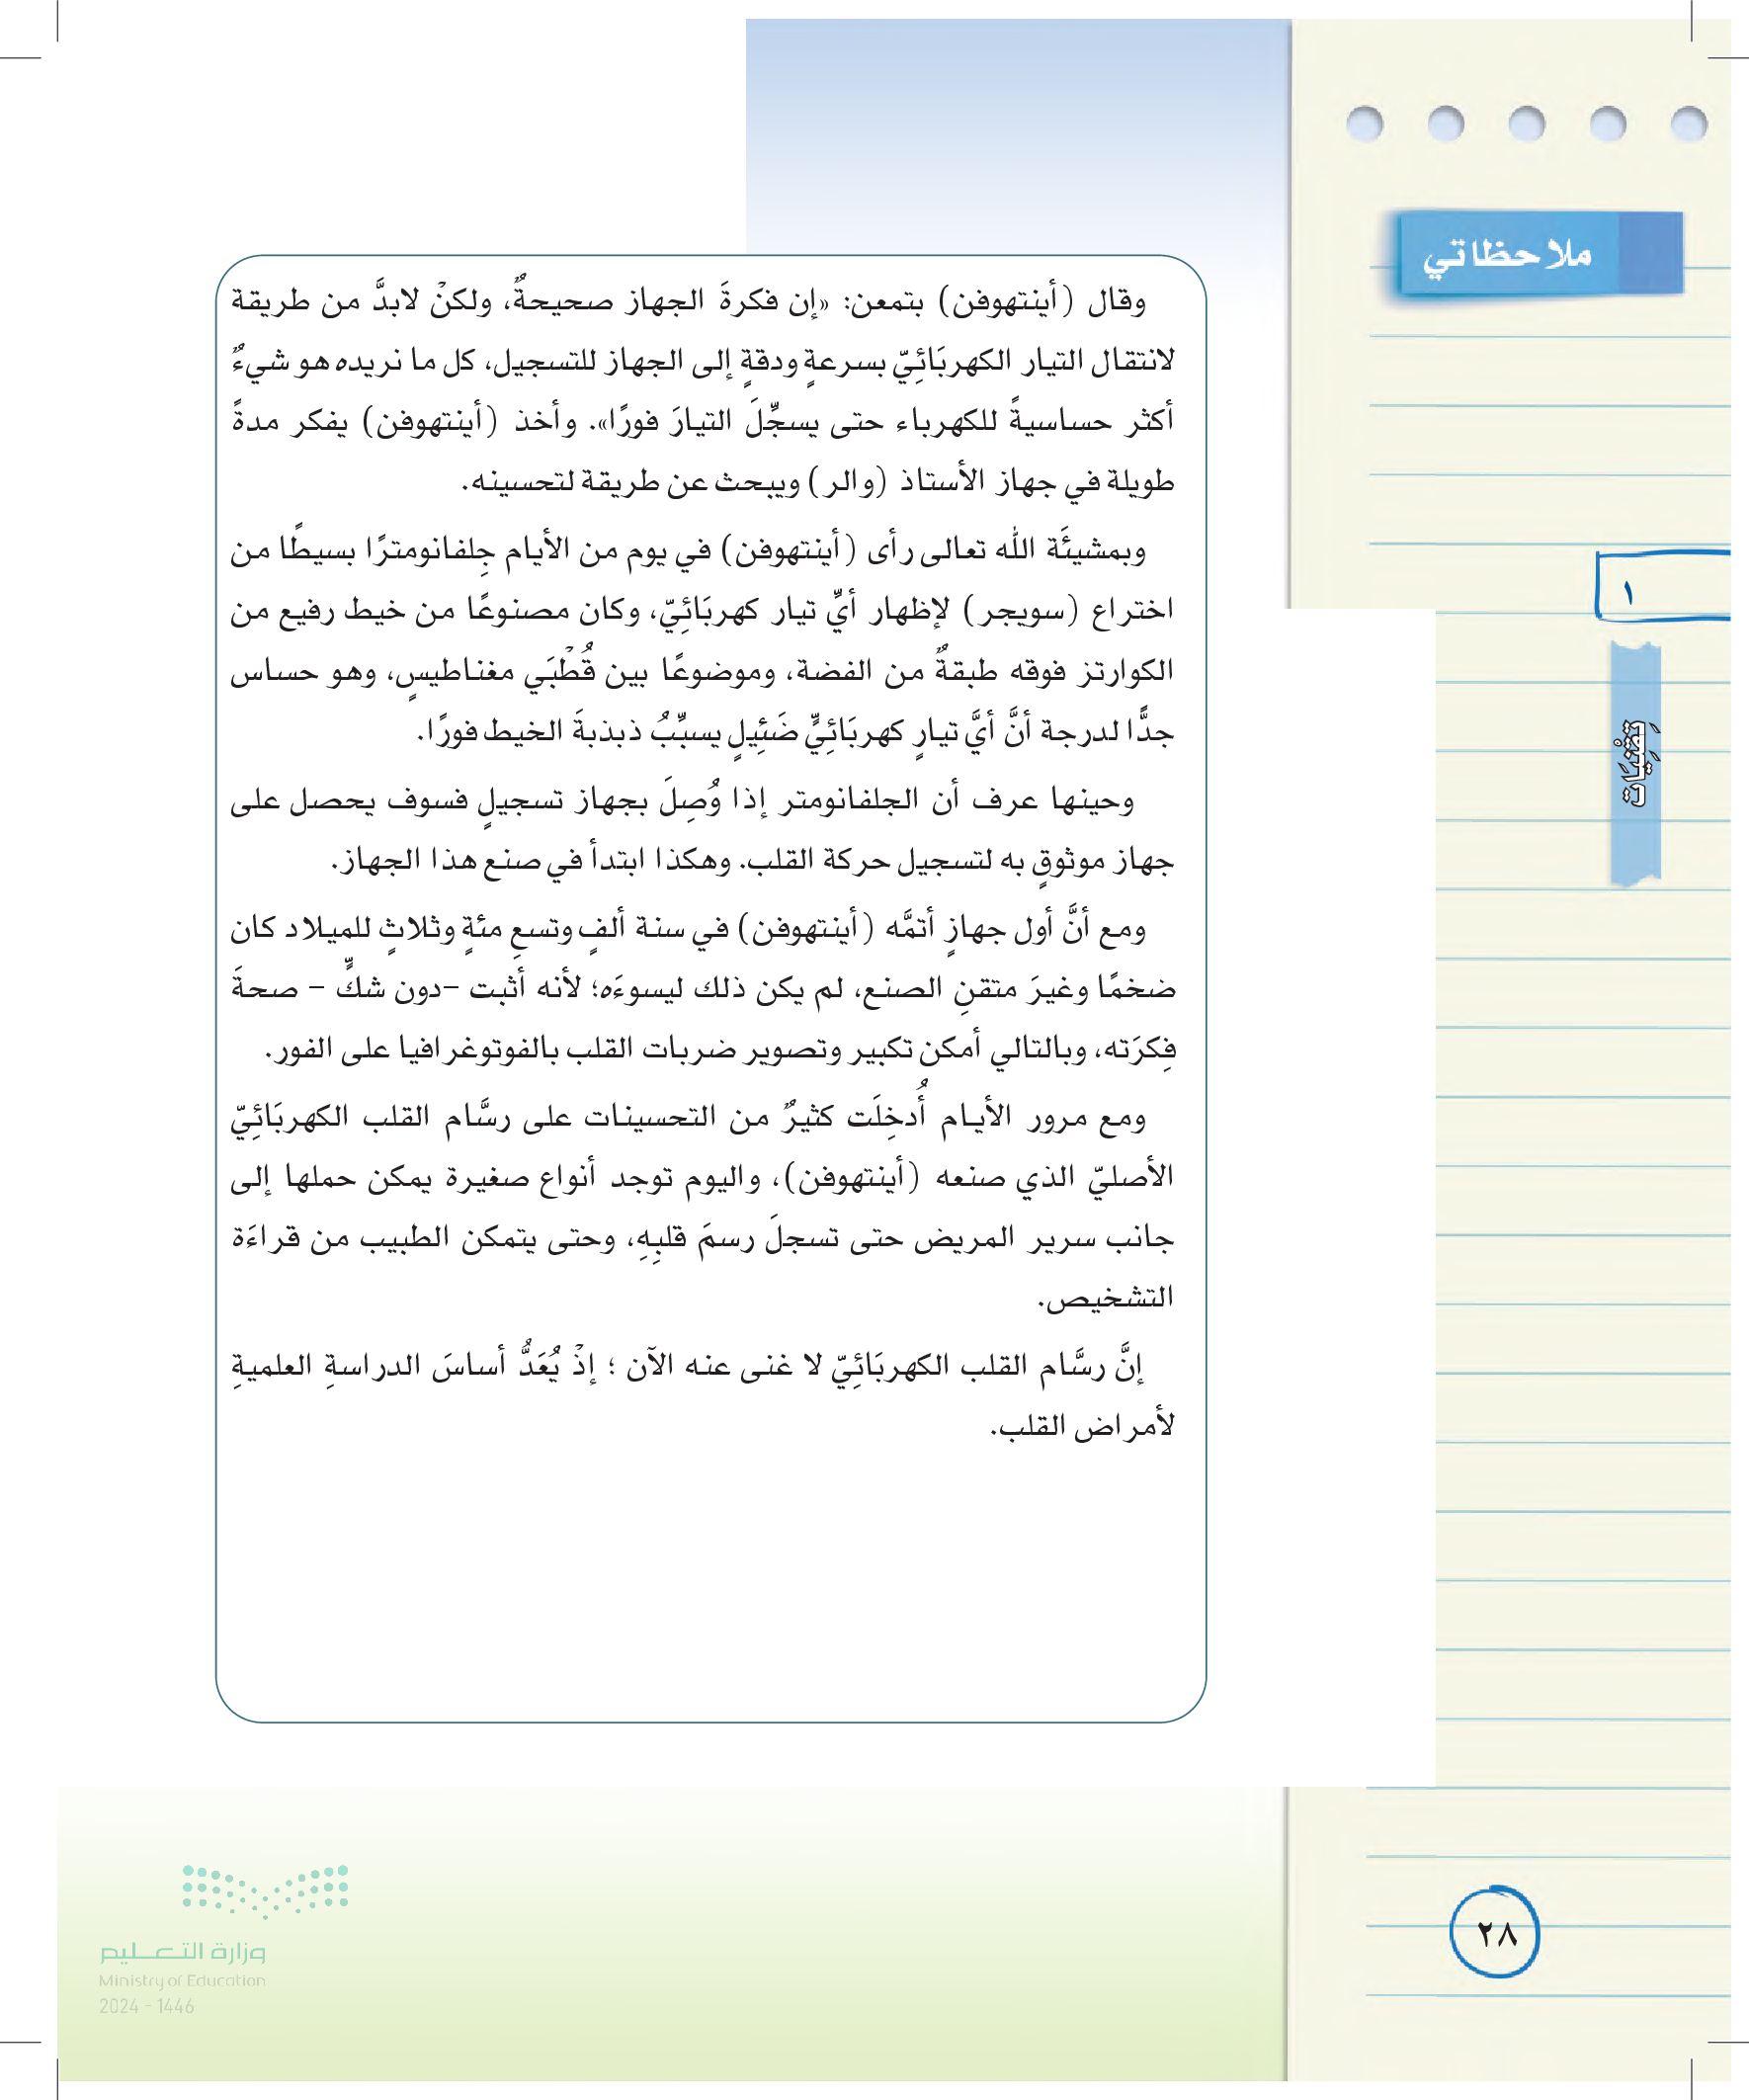 ملاحظاتي
١
تِقْنِيَات
وقال (أينتهوفن) بتمعن: «إن فكرةَ الجهاز صحيحةٌ، ولكنْ لابدَّ من طريقة
لانتقال التيار الكهربَائِيّ بسرعةٍ ودقةٍ إلى الجهاز للتسجيل، كل ما نريده هو شيءٌ
أكثر حساسيةً للكهرباء حتى يسجِّلَ التيارَ فورًا». وأخذ (أينتهوفن) يفكر مدةً
طويلة في جهاز الأستاذ (والر) ويبحث عن طريقة لتحسينه.
وبمشيئَة الله تعالى رأى (أينتهوفن) في يوم من الأيام جِلفانومترًا بسيطًا من
اختراع (سويجر) لإظهار أيِّ تيار كهربَائِيّ، وكان مصنوعًا من خيط رفيع من
الكوارتز فوقه طبقةٌ من الفضة، وموضوعًا بين قُطْبَي مغناطيسٍ، وهو حساس
جدًّا لدرجة أنَّ أيَّ تيارٍ كهربَائِيٍّ ضَئِيلٍ يسبِّبُ ذبذبةَ الخيط فورًا.
وحينها عرف أن الجلفانومتر إذا وُصِلَ بجهاز تسجيلٍ فسوف يحصل على
جهاز موثوقٍ به لتسجيل حركة القلب. وهكذا ابتدأ في صنع هذا الجهاز.
ومع أنَّ أول جهازٍ أتمَّه (أينتهوفن) في سنة ألفٍ وتسعِ مئةٍ وثلاثٍ للميلاد كان
ضخمًا وغيرَ متقنِ الصنع، لم يكن ذلك ليسوءَه؛ لأنه أثبت –دون شكٍّ – صحةَ
فِكرَته، وبالتالي أمكن تكبير وتصوير ضربات القلب بالفوتوغرافيا على الفور.
ومع مرور الأيام أُدخِلَت كثيرٌ من التحسينات على رسَّام القلب الكهربَائِيّ
الأصليّ الذي صنعه (أينتهوفن)، واليوم توجد أنواع صغيرة يمكن حملها إلى
جانب سرير المريض حتى تسجلَ رسمَ قلبِهِ، وحتى يتمكن الطبيب من قراءَة
التشخيص.
إنَّ رسَّام القلب الكهربَائِيّ لا غنى عنه الآن ؛ إذْ يُعَدُّ أساسَ الدراسةِ العلميةِ
لأمراض القلب.
٢٨
وزارة التعليم
Ministry of Education
2024 - 1446